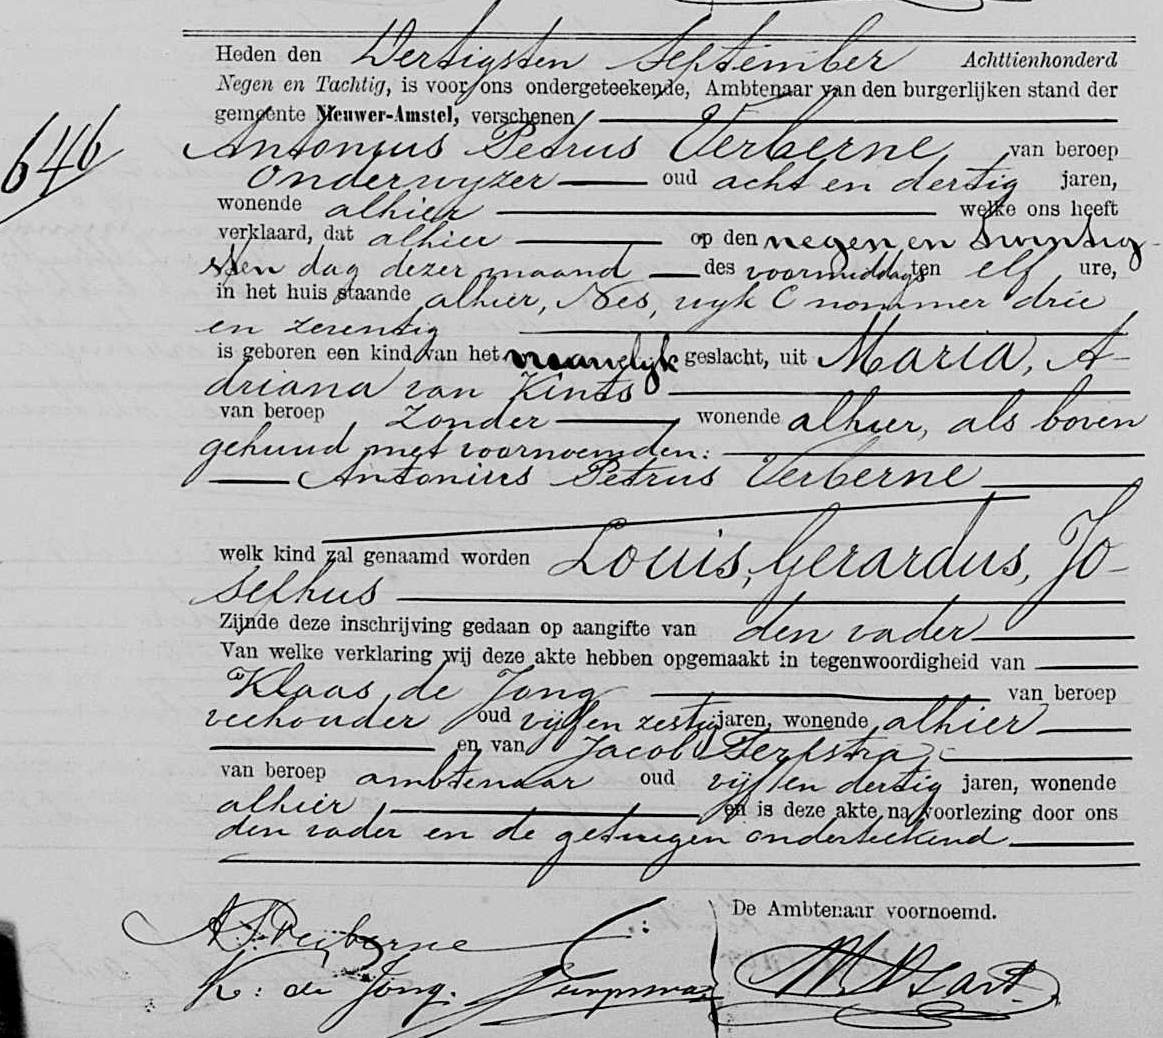 Heden den Dertigsten September Achttienhonderd
Negen en Tachtig, is voor ons ondergeteekende, Ambtenaar van den burgerlijken stand der
gemeente Nieuwer-Amstel, verschenen
646
Antonius Petrus Verberne van beroep
onderwyzer oud acht en dertig jaren,
wonende alhier welke ons heeft
verklaard, dat alhier op den negen en twintig-
sten dag dezer maand des voormiddags ten elf ure,
in het huis staande alhier, Nes, wyk C nommer drie
en zeventig
is geboren een kind van het mannelyk geslacht, uit Maria, A-
driana van Kints
van beroep zonder wonende alhier, als boven
gehuwd met voornoemden:
Antonius Petrus Verberne
welk kind zal genaamd worden Louis, Gerardus, Jo-
sephus
Zijnde deze inschrijving gedaan op aangifte van den vader
Van welke verklaring wij deze akte hebben opgemaakt in tegenwoordigheid van
Klaas de Jong van beroep
veehouder oud vijf en zestig jaren, wonende alhier
en van Jacob Terpstra
van beroep ambtenaar oud vijf en dertig jaren, wonende
alhier en is deze akte na voorlezing door ons
den vader en de getuigen onderteekend
De Ambtenaar voornoemd.
A. P. Verberne
K. de Jong.